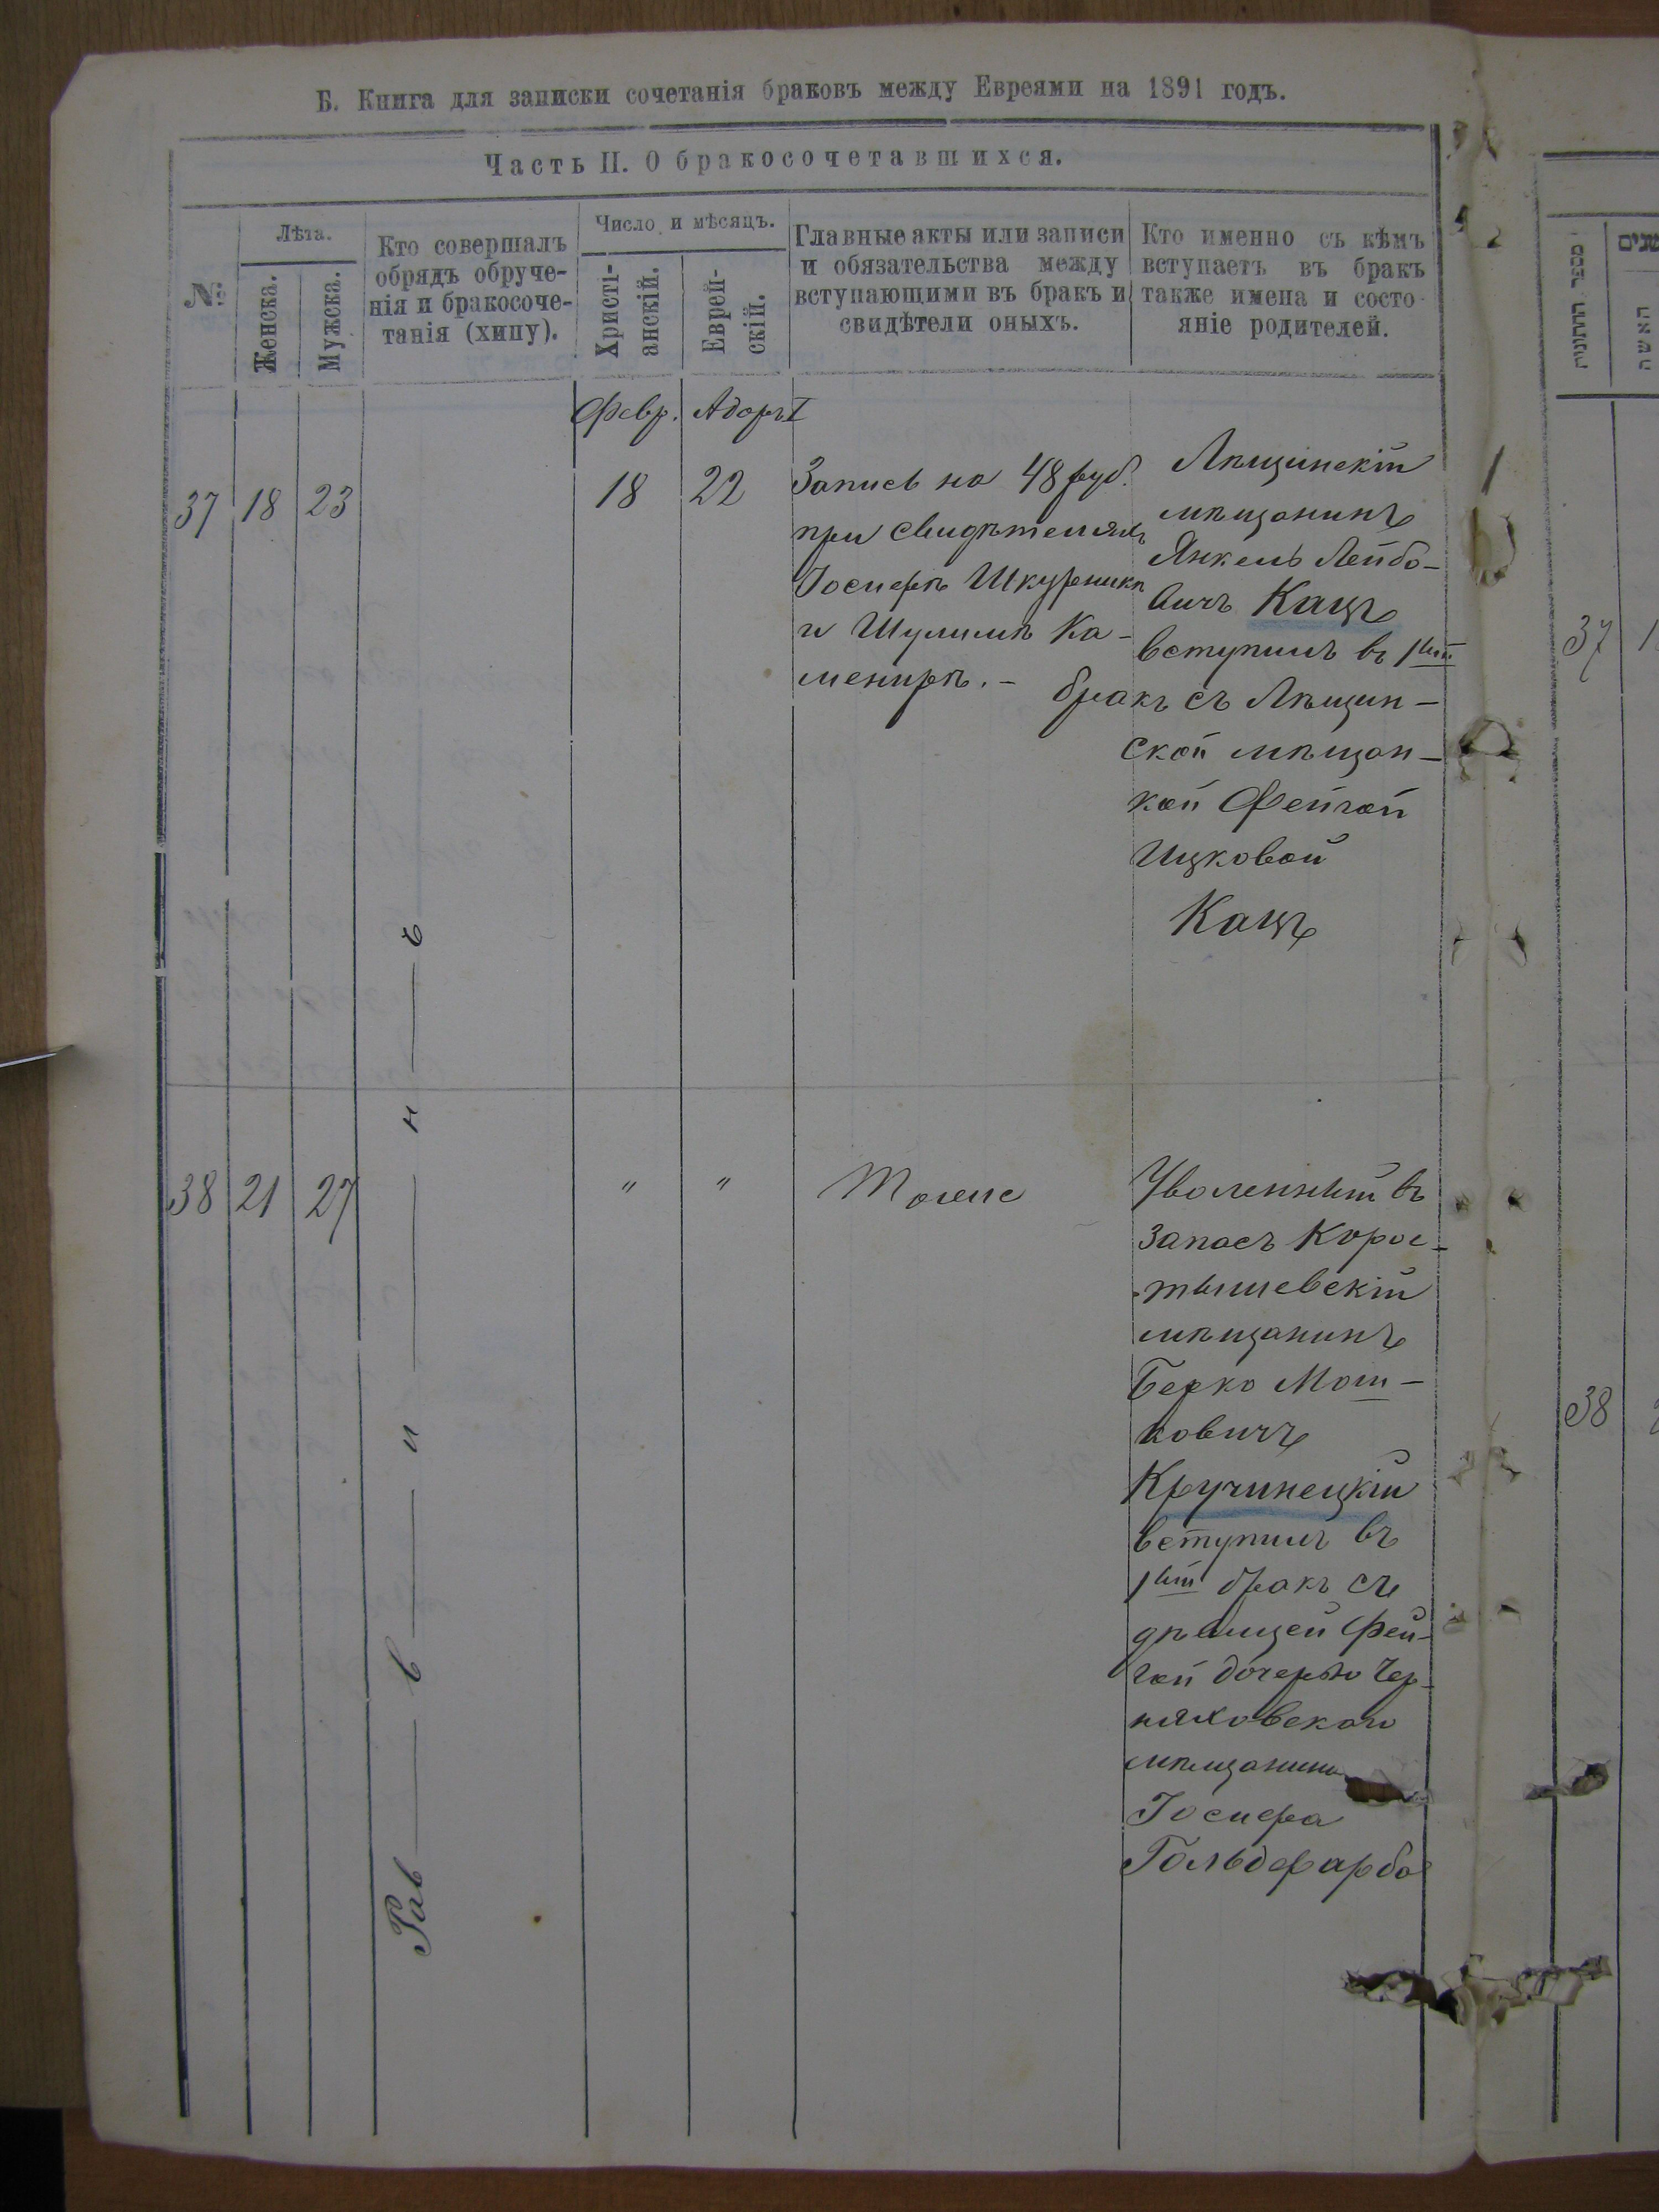 Б. Книга для записки сочетанія браковъ между Евреями на 1891 годъ.
Часть II. О бракосочетавшихся.
№
Лѣта.
Женска.
Мужска.
Кто совершалъ
обрядъ обруче-
нія и бракосоче-
танія (хипу).
Число и мѣсяцъ.
Христі-
анскій.
Еврей-
скій.
Главные акты или записи
и обязательства между
вступающими въ бракъ и
свидѣтели оныхъ.
Кто именно съ кѣмъ
вступаетъ въ бракъ
также имена и состо-
яніе родителей.
Февр. Адаръ I
37 18 23
18 22
Запись на 48 руб.
при свидѣтеляхъ
Іосиферѣ Шкурникѣ
и Шулимѣ Ка-
менирѣ. –
Лѣщинскій
мѣщанинъ
Янкель Лейбо-
вичъ Кацъ
вступилъ въ 1ый
бракъ съ Лѣщин-
ской мѣщан-
кой Фейгой
Ицковой
Кацъ
38 21 27
" "
Тоже
Уволенный въ
запасъ Корос-
тышевскій
мѣщанинъ
Берко Мош-
ковичъ
Кручинецкій
вступилъ въ
1ый бракъ съ
дѣвицей Фей-
гой дочерью Чер-
няховскаго
мѣщанина
Іосифа
Гольдфарба
Рав в и н ъ
מספר החתונות
שנים
האשה
37
38